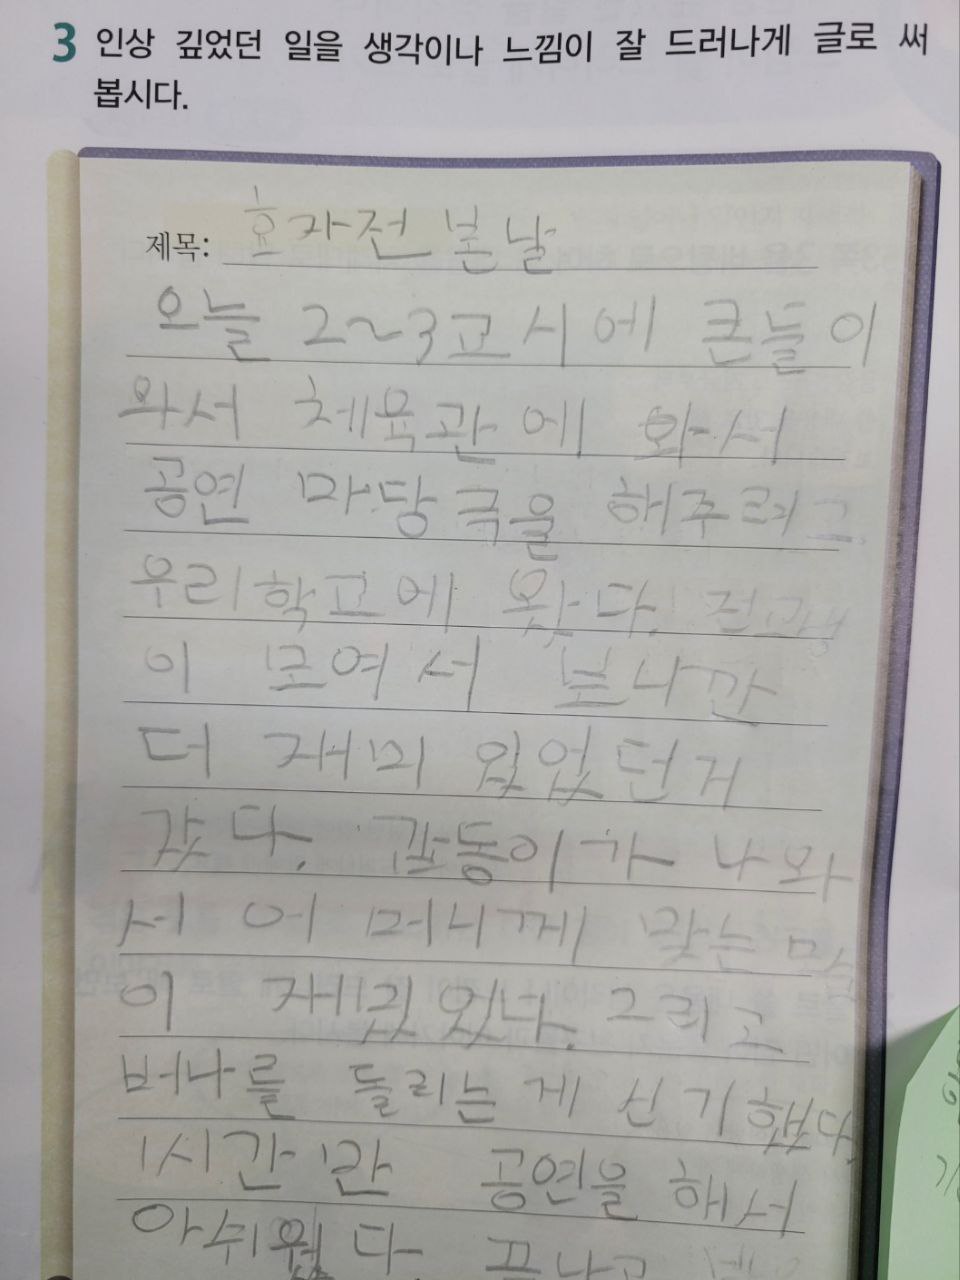 3 인상 깊었던 일을 생각이나 느낌이 잘 드러나게 글로 써
봅시다.
제목: 효자전 본 날
오늘 2~3교시에 큰들이
와서 체육관에 와서
공연 마당극을 해주려고
우리학교에 왔다. 전교생
이 모여서 보니깐
더 재미 있었던거
같다. 갑동이가 나와
서 어머니께 맞는
이 재밌었다. 그리고
버나를 돌리는 게 신기했다.
1시간만 공연을 해서
아쉬웠다 끝나고